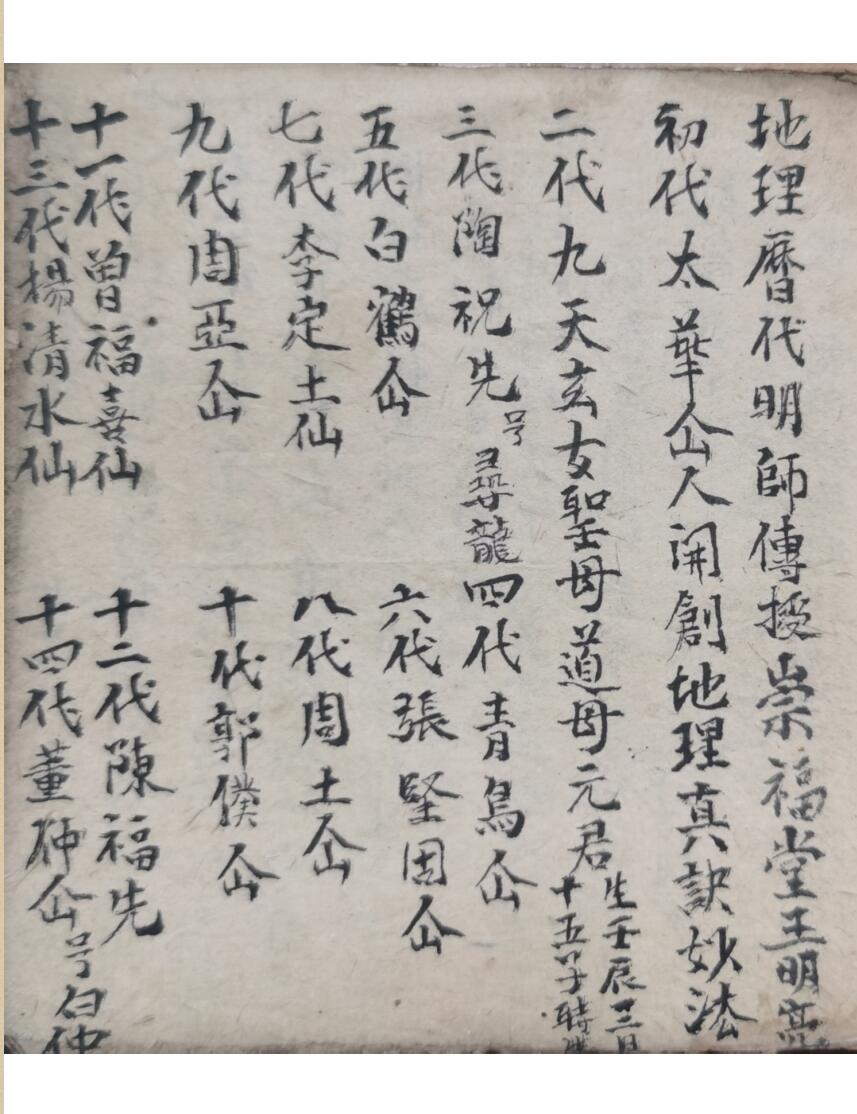 地理暦代明師傳授崇福堂王明亮
初代太華仚人開創地理真訣妙法
二代九天玄女聖母道母元君
生壬辰十三日
十五子時
三代陶祝先号尋龍四代青烏仚
五代白鶴仚
六代張堅固仚
七代李定土仙
八代周土仚
九代周亞仚
十代郭僕仚
十一代曽福喜仙
十二代陳福先
十三代楊清水仙
十四代董仲仚号白仲